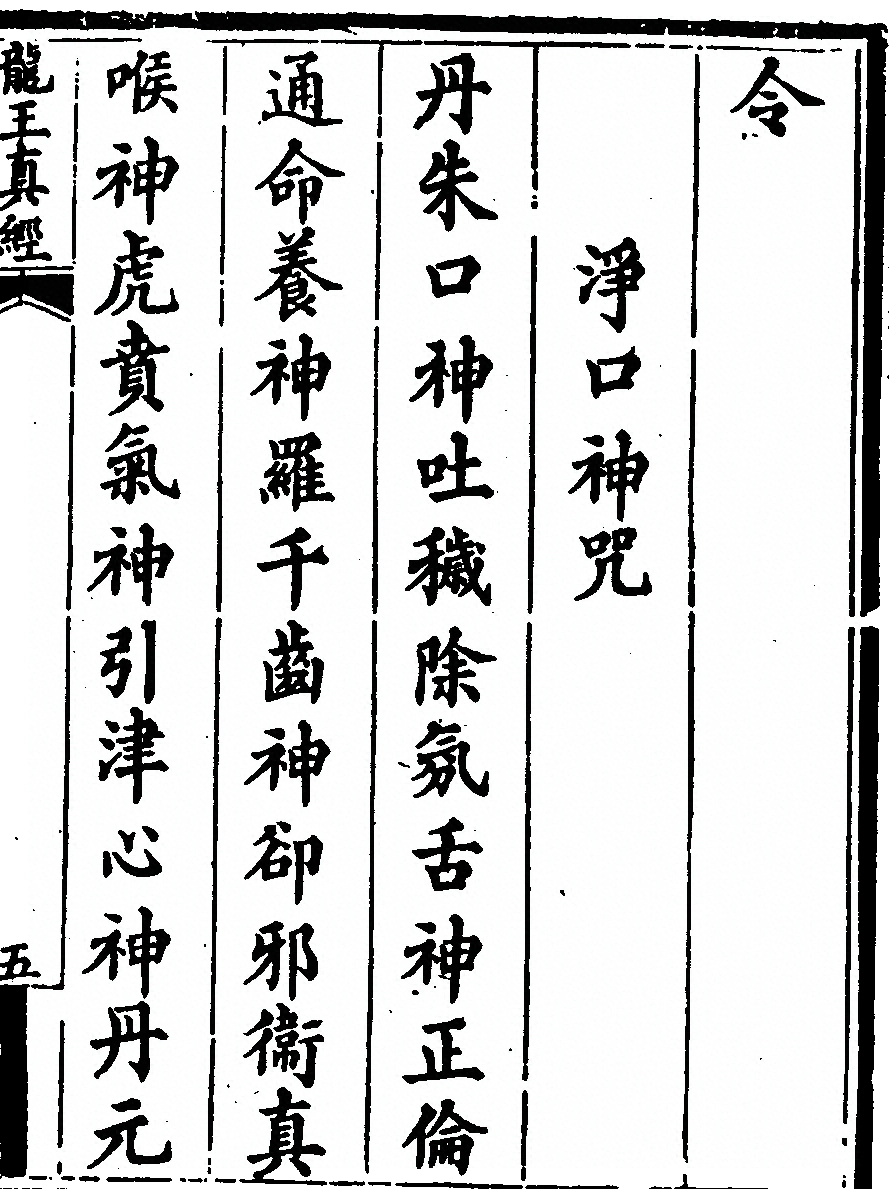 令
淨口神咒
丹朱口神吐穢除氛舌神正倫
通命養神羅千齒神卻邪衞真
喉神虎賁氣神引津心神丹元
龍王真經
五